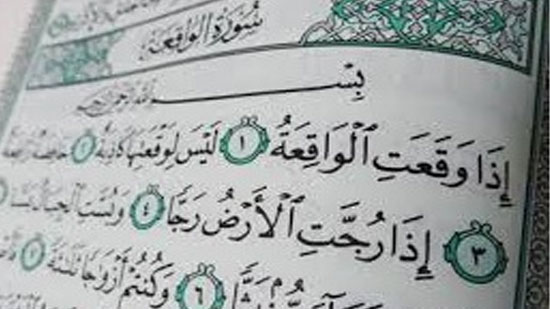 سُورَةُ الوَاقِعَة
بِسْمِ اللَّهِ الرَّحْمَٰنِ الرَّحِيمِ
إِذَا وَقَعَتِ ٱلْوَاقِعَةُ ١ لَيْسَ لِوَقْعَتِهَا كَاذِبَةٌ ٢ خَافِضَةٌ
٣ إِذَا رُجَّتِ ٱلْأَرْضُ رَجًّا ٤ وَبُسَّتِ ٱلْجِبَالُ
٦ وَكُنتُمْ أَزْوَٰجًا ثَلَٰثَةً ٧